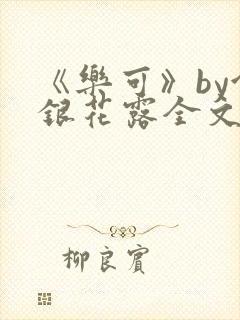 《樂可》by
銀花露全文
柳良賓